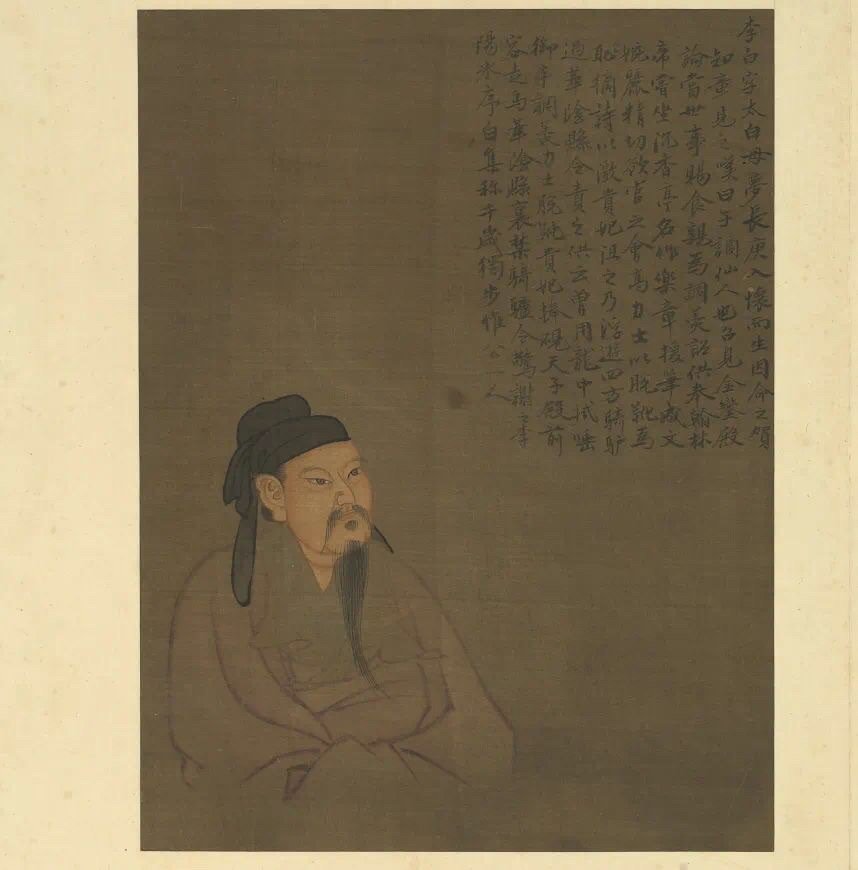 李白字太白母夢長庚入懷而生因命之賀
知章見之嘆曰子謫仙人也召見金鑾殿
論當世事賜食親為調羹詔供奉翰林
帝嘗坐沉香亭名作樂章援筆成文
婉麗精切欲官之會高力士以脫靴為
恥摘詩以激貴妃沮之乃浮遊四方騎驴
過華陰縣令責之供云曾用龍巾拭唾
御手調羹力士脫靴貴妃捧硯天子殿前
容走馬華陰縣裏禁騎驢令驚謝之李
陽冰序白集称千歲獨步惟公一人